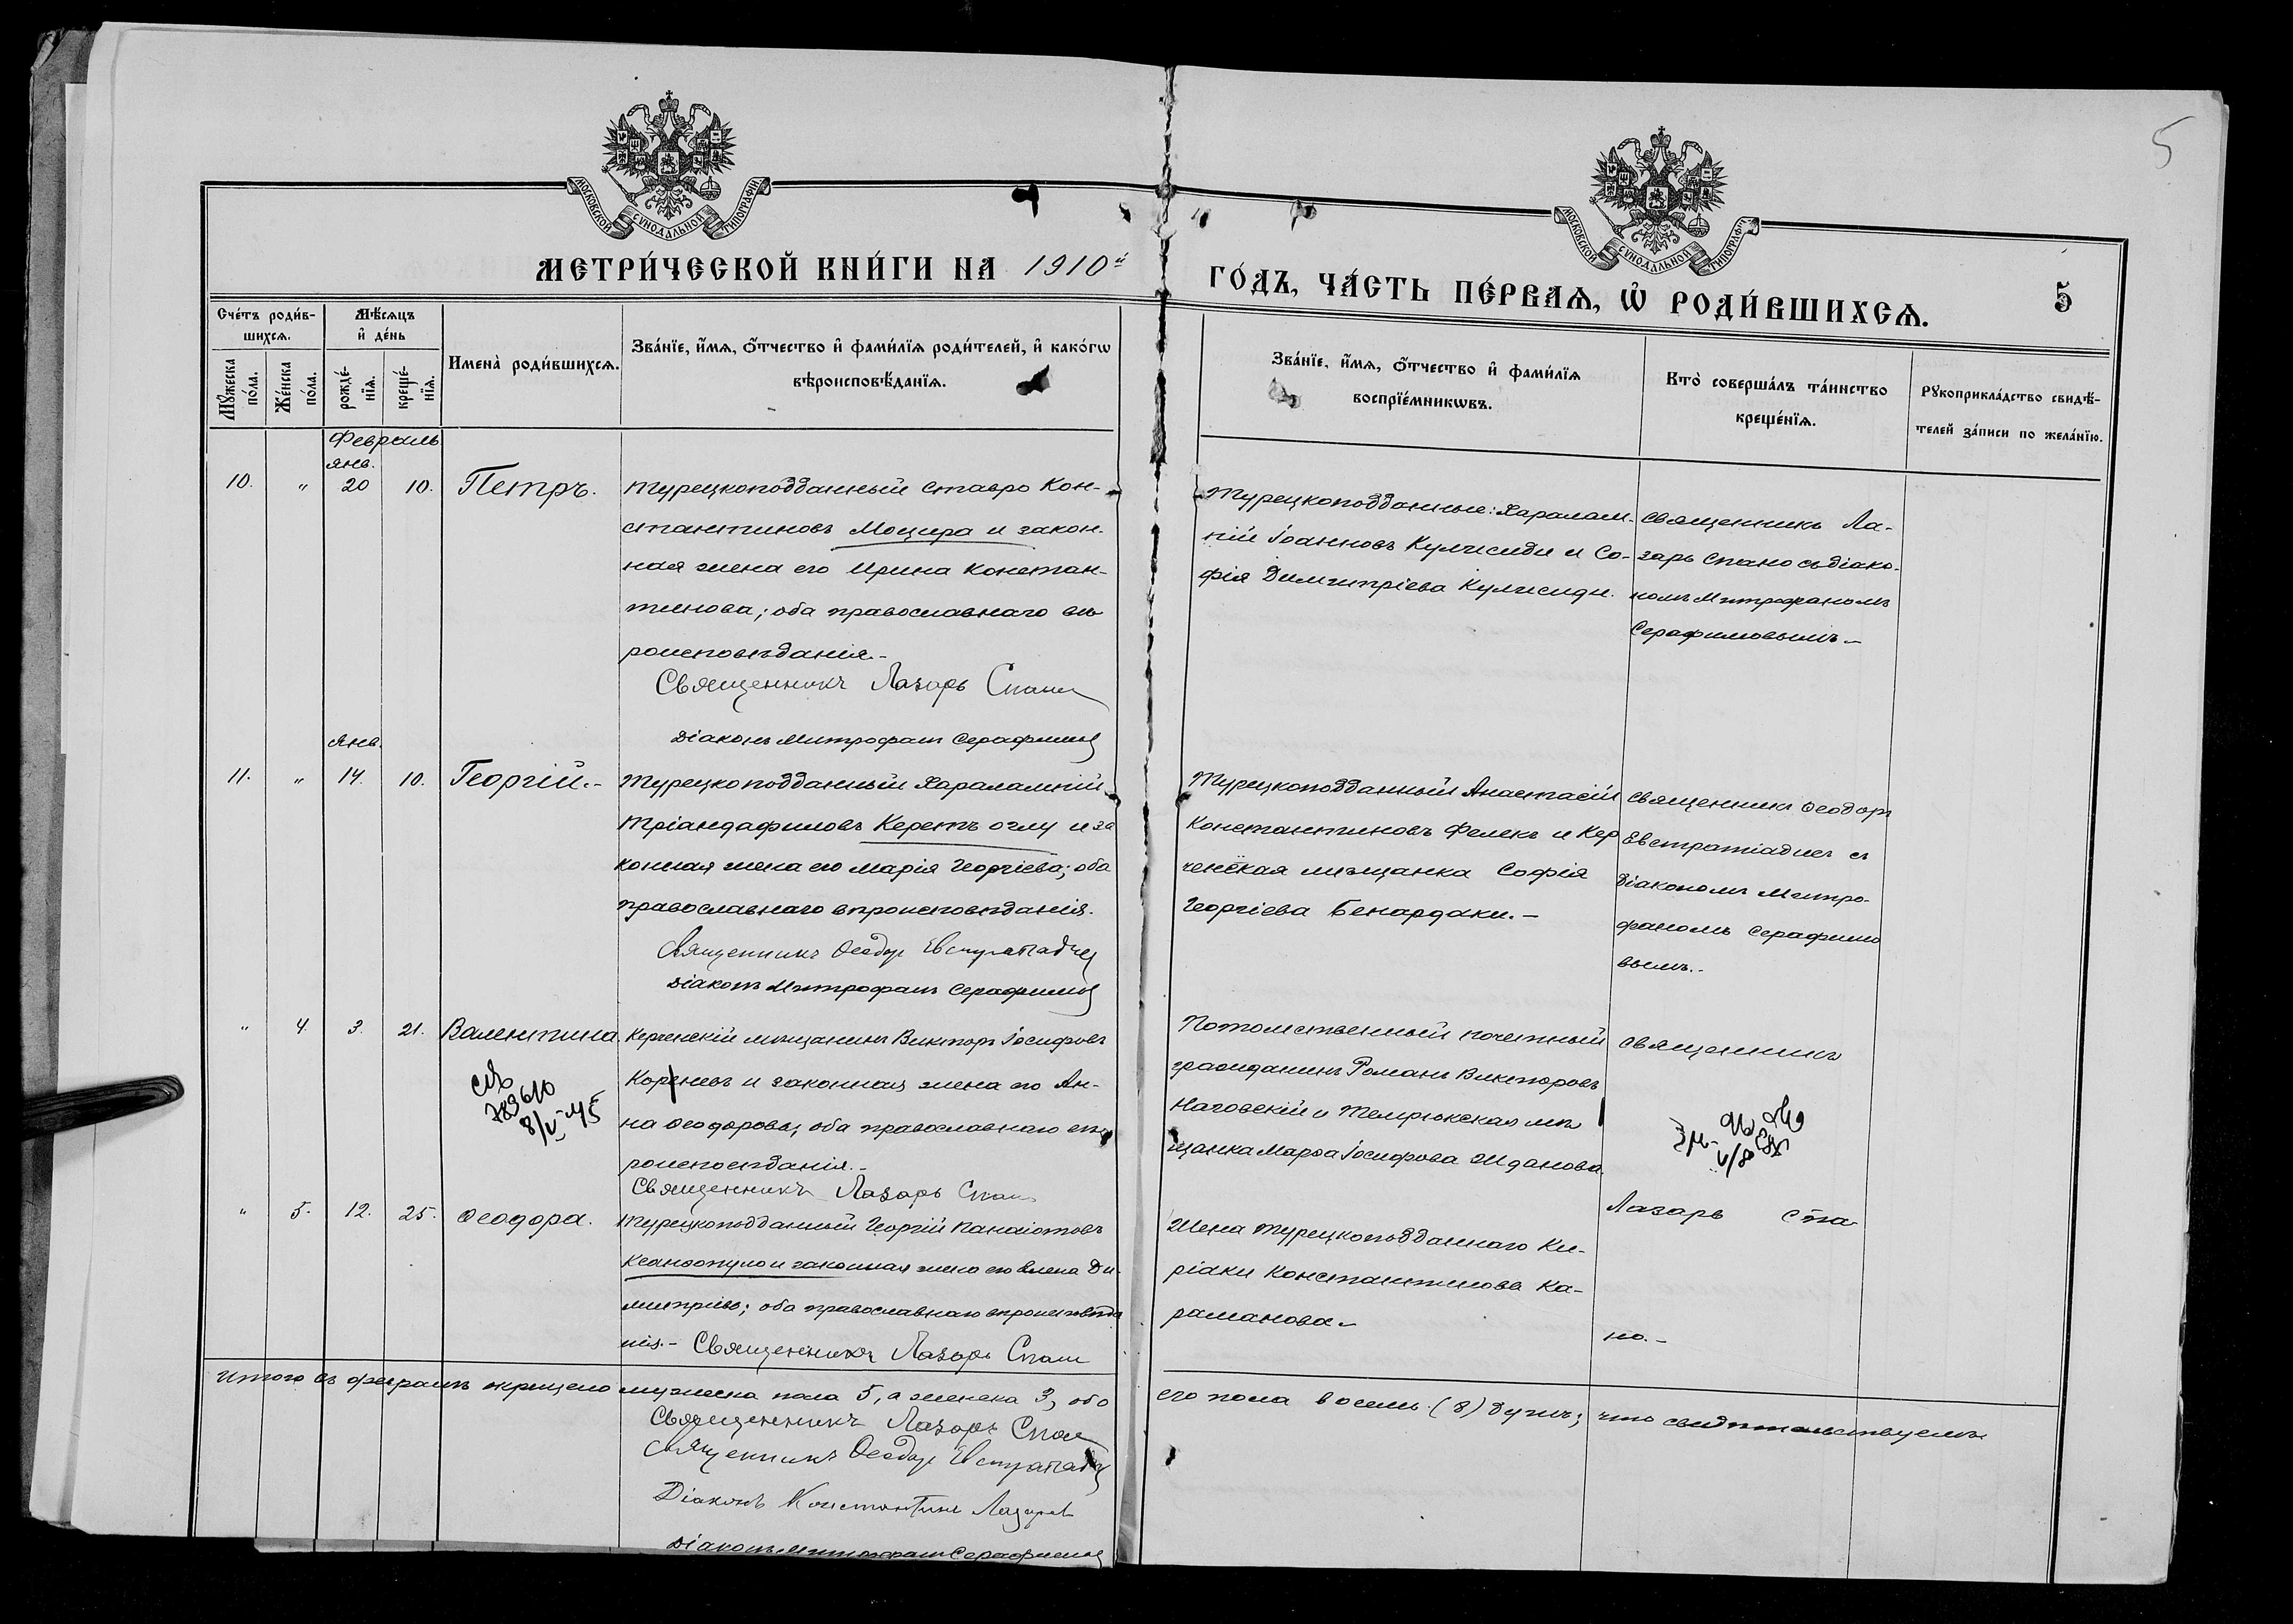 5
МОСКОВСКОЙ СѴНОДАЛЬНОЙ ТИПОГРАФІИ
МОСКОВСКОЙ СѴНОДАЛЬНОЙ ТИПОГРАФІИ
МЕТРИ́ЧЕСКОЙ КНИ́ГИ НА 1910й
ГО́ДЪ, ЧА́СТЬ ПЕ́РВАѦ, Ѡ҆ РОДИ́ВШИХСѦ.
5
Сче́тъ роди́в-
шихсѧ.
Мꙋ́жеска по́ла.
Же́нска по́ла.
Мѣ́сѧцъ
и҆ де́нь
рожде́-
нїѧ.
креще́-
нїѧ.
Имена̀ роди́вшихсѧ.
Зва́нїе, и҆́мѧ, ѻ҆́тчество и҆ фами́лїѧ роди́телей, и҆ како́гѡ
вѣроисповѣ́данїѧ.
Зва́нїе, и҆́мѧ, ѻ҆́тчество и҆ фами́лїѧ
воспрїе́мникѡвъ.
Кто̀ соверша́лъ та́инство
креще́нїѧ.
Рꙋкоприкла́дство свидѣ́-
телей за́писи по жела́нїю.
Февраль
янв.
10. " 20 10. Петръ.
Турецкоподданный Ставро Кон-
стантиновъ Моцира и закон-
ная жена его Ирина Констан-
тинова; оба православнаго вѣ
роисповѣданія.-
Священникъ Лазарь Спано
Діаконъ Митрофанъ Серафимов
Турецкоподданные: Харалам-
пій Іоанновъ Кулчсиди и Со-
фія Димитріева Кулчсиди.
Священникъ Ла-
зарь Спано съ діако-
номъ Митрофаномъ
Серафимовымъ.-
Янв.
11. " 14. 10. Георгій.-
Турецкоподданный Харалампій
Тріандафиловъ Керетъ оглу и за
конная жена его Марія Георгіева; оба
православнаго вѣроисповѣданія.
Священникъ Ѳеодоръ Евстратіадис
Діаконъ Митрофанъ Серафимов
Турецкоподданный Анастасій
Константиновъ Фелекъ и Кер
ченская мѣщанка Софія
Георгіева Бенардаки.-
Священникъ Ѳеодоръ
Евстратіадис съ
діакономъ Митро-
фаномъ Серафимо
вымъ.-
" 4. 3. 21. Валентина
Керченскій мѣщанинъ Викторъ Іосифовъ
Корневъ и законная жена его Ан-
на Ѳеодорова; оба православнаго вѣ
роисповѣданія.-
Священникъ Лазарь Спано
789610
8/V-45
Потомственный почетный
гражданинъ Романъ Викторовъ
Наговскій и Темрюкская мѣ
щанка Марѳа Іосифова Жданова
Священникъ
" 5. 12. 25. Ѳеодора.
Турецкоподданный Георгій Панаіотовъ
Ксанѳопуло и законная жена его Елена Ди-
митріева; оба православнаго вѣроисповѣда
нія.- Священникъ Лазарь Спано
Жена турецкоподданнаго Ки-
ріаки Константинова Ка-
раманова.-
Лазарь Спа-
но.-
Итого въ февралѣ крещено мужеска пола 5, а женска 3, обо
его пола восемь (8) душъ; что свидѣтельствуемъ
Священникъ Лазарь Спано
Священникъ Ѳеодоръ Евстратіадис
Діаконъ Константинъ Лазарев
Діаконъ Митрофанъ Серафимов